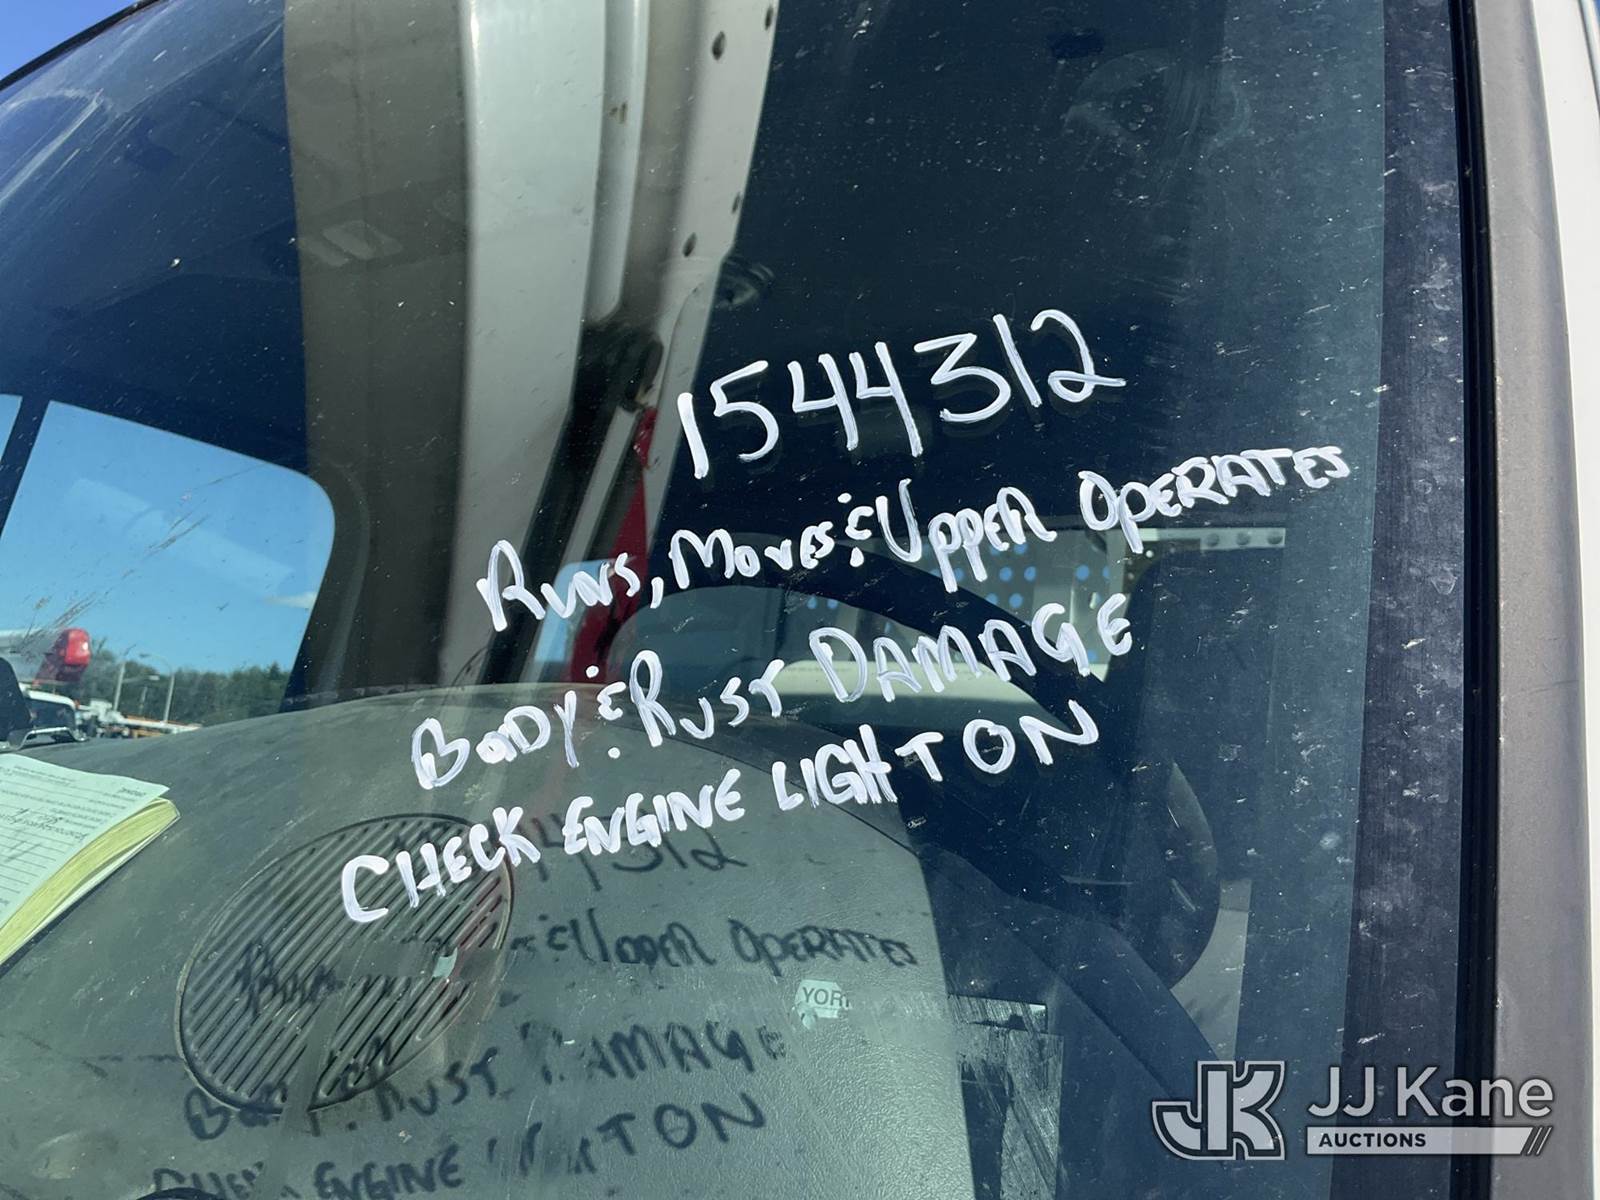 1544312
RUNS, MOVES & UPPER OPERATES
BODY & RUST DAMAGE
CHECK ENGINE LIGHT ON
YOR
JJ Kane
AUCTIONS